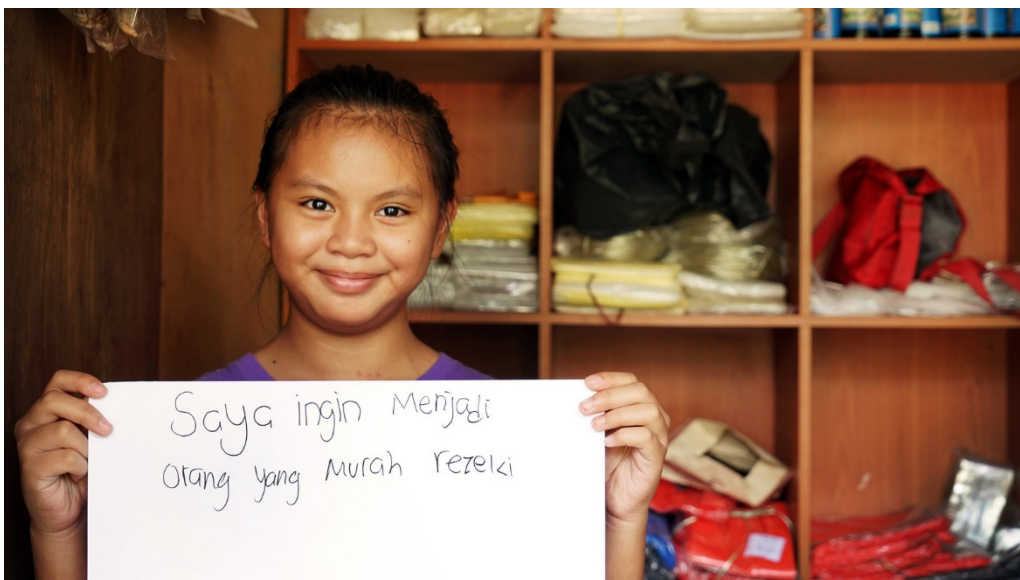 Saya ingin Menjadi
orang yang Murah rezeki